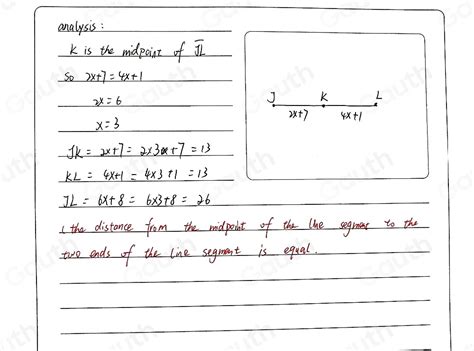 analysis:
K is the midpoint of JL
So 2x+7=4x+1
2x=6
x=3
J K L
2x+7 4x+1
JK = 2x+7 = 2x3+7 = 13
KL = 4x+1 = 4x3+1 = 13
JL = 6x+8 = 6x3+8 = 26
( the distance from the midpoint of the line segment to the
two ends of the line segment is equal.
Gauth